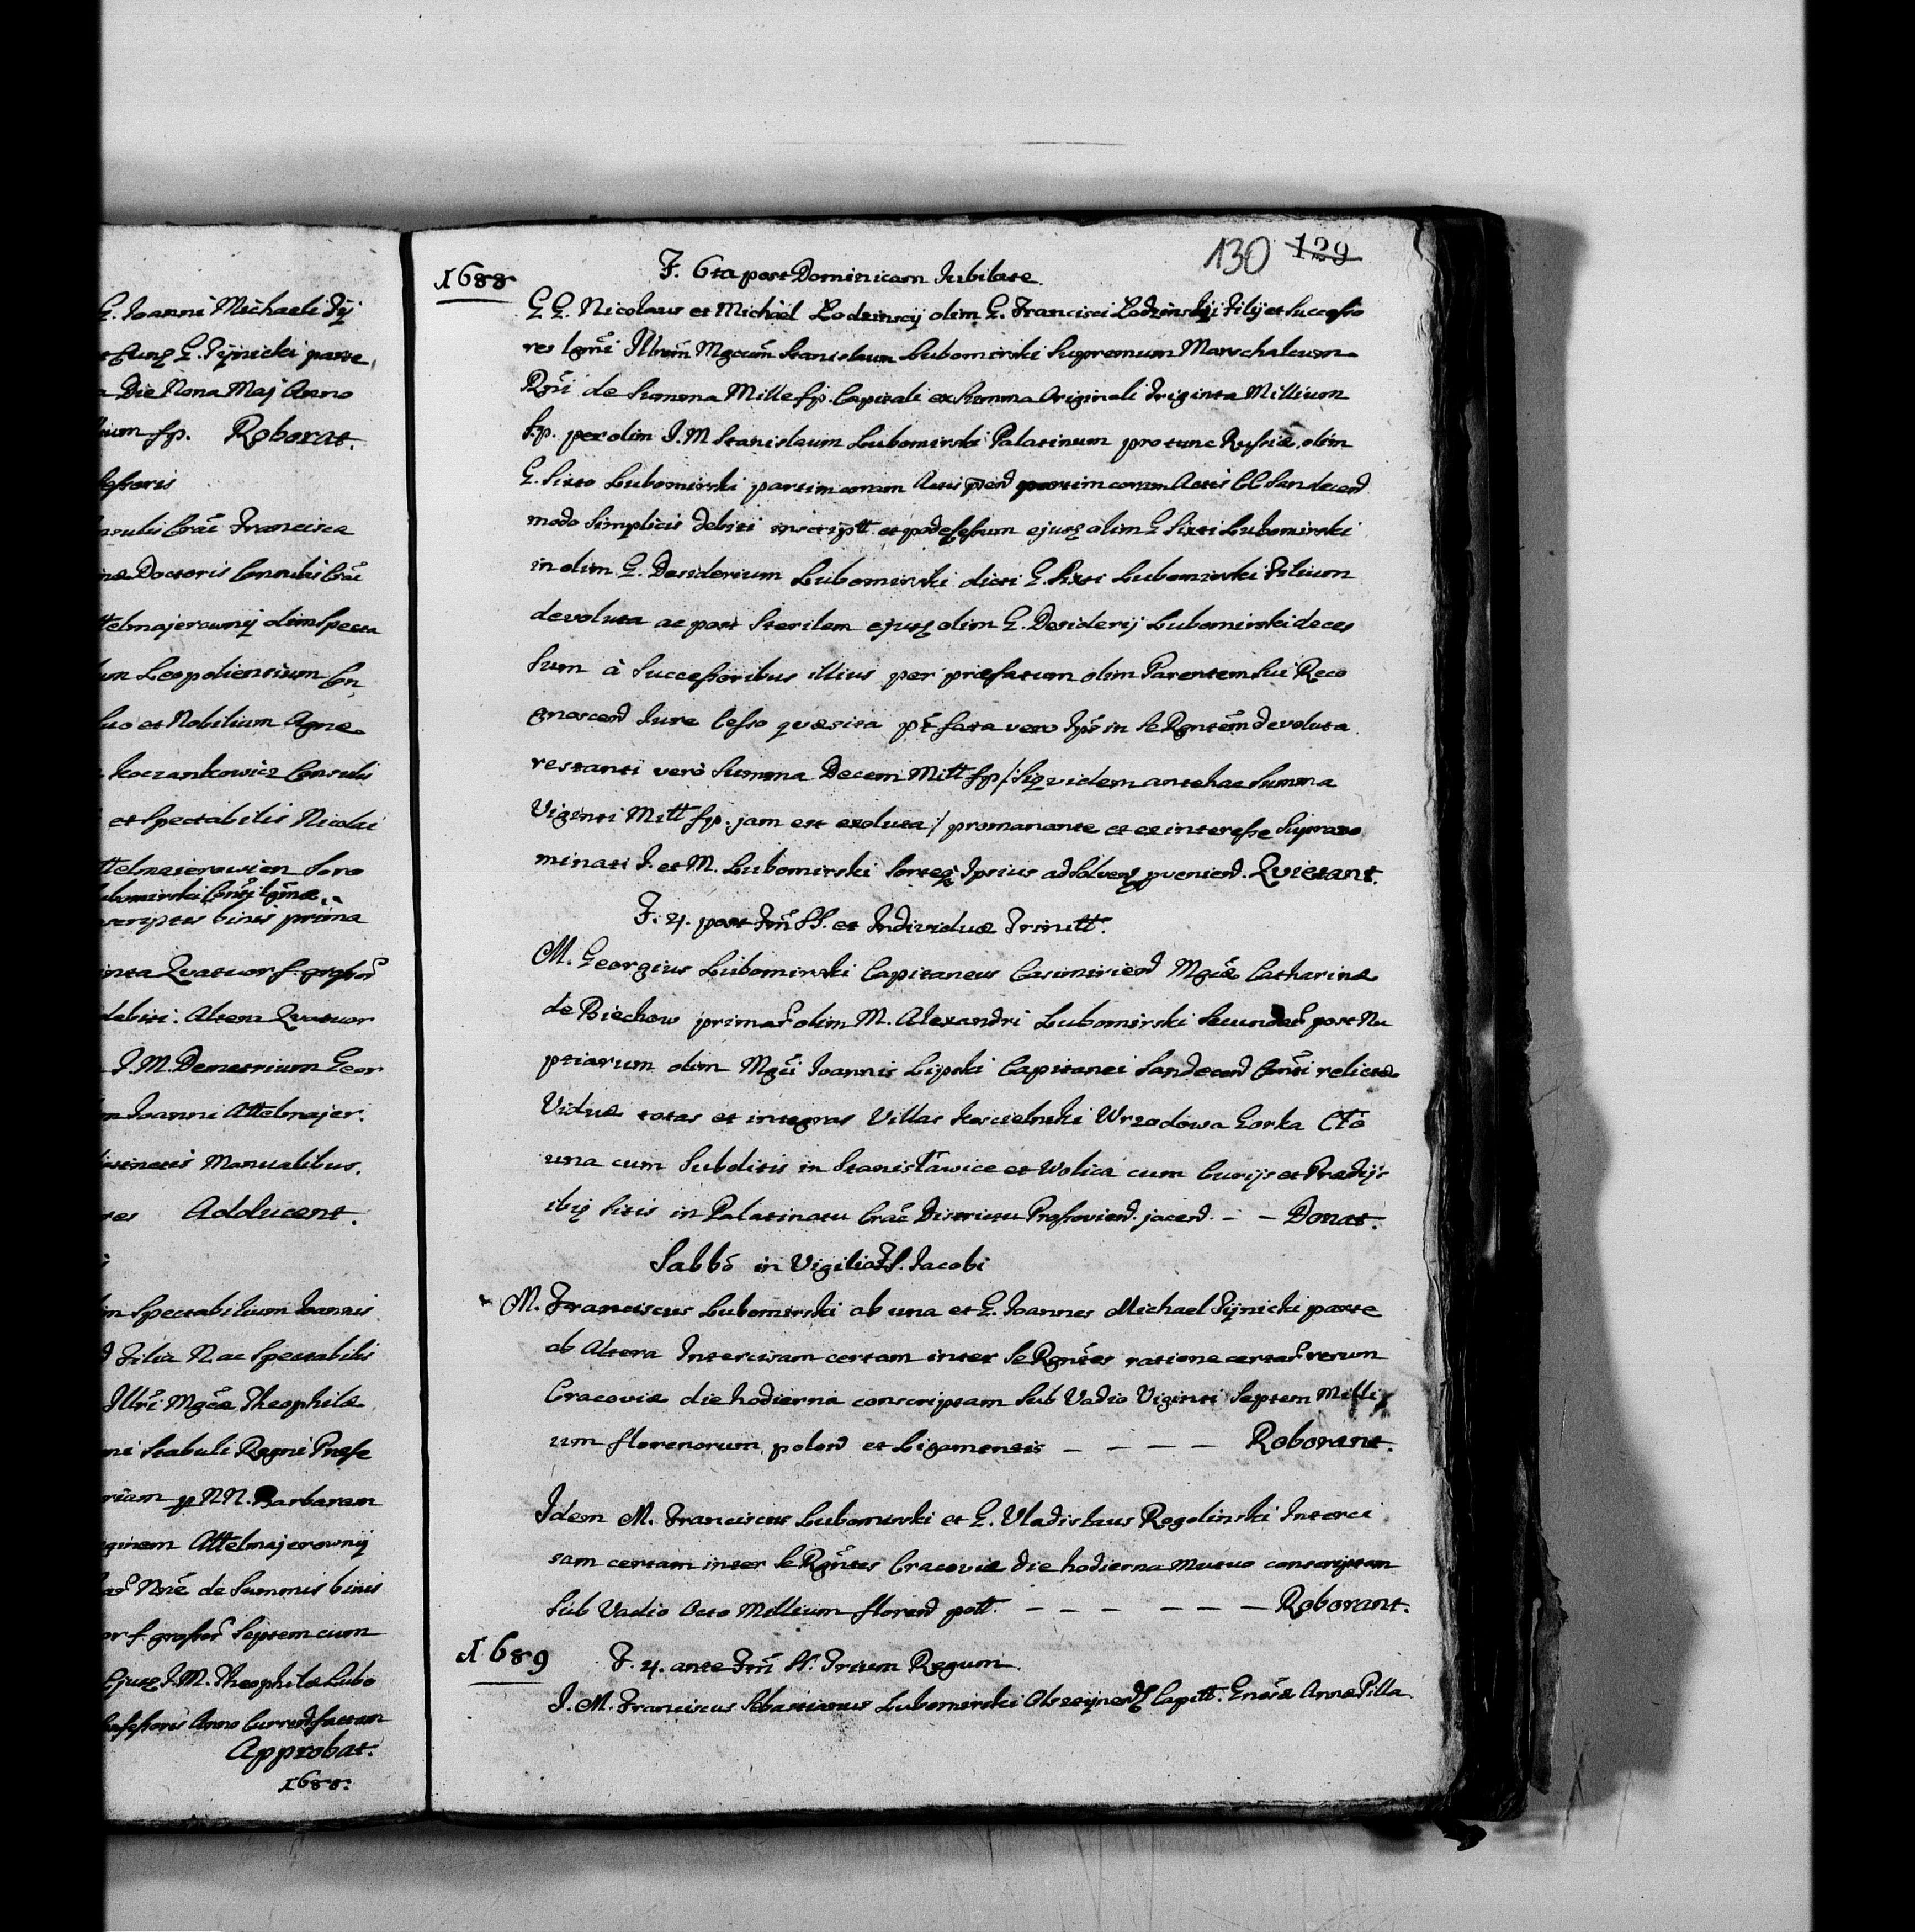 G. Joanni Michaeli Ty
G. Tynicki parte
Die Nona Maj Anno
fp. Roborat.
Francisca
Doctoris Consulis Crac
ttelmajerowny olim Specta
Leopoliensium Con
et Nobilium Agne
Koczankowicz Consulis
et Spectabilis Nicolai
Lubomirski
scriptis binis prima
Quatuor f.
debiti. Altera Quatuor
J. M. Demetrium Geor
Joanni Attelmajer.
Manualibus.
Adducent.
Spectabilium Joannis
Filia N. ac Spectabilis
Illri Mgcae Theophilae
Stabuli Regni Praefe
p NN. Barbaram
Attelmajerowny
Nne de Summis binis
f. grossor Septem cum
Ejusq J. M. Theophilae Lubo
Anno Currend factam
Approbat.
1688.
130 129
1688 F. 6ta post Dominicam Jubilate.
G G. Nicolaus et Michael Lodzinscy olim G. Francisci Lodzinskij Filij et Successo
res Illrem Mgcum Stanislaum Lubomirski Supremum Marschalcum
Rgni de Summa Mille fp. Capitali ex Summa Originali Triginta Millium
fp. per olim J. M Stanislaum Lubomirski Palatinum pro tunc Russiae olim
G. Sixto Lubomirski partim coram Actis pnd partim coram Actis CC Sandecend
modo Simplicis debiti inscriptt et post decessum ejusq olim G Sixti Lubomirski
in olim G. Desiderium Lubomirski dicti G. Sixti Lubomirski Filium
devoluta ac post Sterilem ejusq olim G. Desiderij Lubomirski deces
Sum à Successoribus illius per praefatum olim Parentem Sui Reco
gnoscend Jure Cesso quaesita pt fata vero Ips in Se Rgntem devoluta
restanti verò Summa Decem Mill fp /:Siquidem antehac Summa
Viginti Mill fp. jam est exoluta:/ promanante et ex interesse Suprano
minati J. et M. Lubomirski Sorteq Ipsius ad Solvend pveniend. Quietant.
F. 4. post Fm SS. et Individuae Trinitt.
M. Georgius Lubomirski Capitaneus Casimiriend Mgcae Catharinae
de Biechow primar olim M. Alexandri Lubomirski Secundar post Nu
ptiarum olim Mgci Joannis Lipski Capitanei Sandecend Consi relictae
Viduae totas et integras Villas Koscielniki Wrzodowa Gorka Cto
una cum Subditis in Stanisławice et Wolica cum Curijs et Praedijs
ibiq Sitis in Palatinatu Crac Districtu Prossoviend. jacend. - - Donat.
Sabbo in Vigilia F S. Jacobi
M. Franciscus Lubomirski ab una et G. Joannes Michael Tynicki parte
ab Altera Intercisam certam inter Se Rgntes ratione certar rerum
Cracoviae die hodierna conscriptam Sub Vadio Viginti Septem Milli
um florenorum polond et Ligamentis - - - - Roborant.
Idem M. Franciscus Lubomirski et G. Vladislaus Rogolinski Interci
sam certam inter Se Rgntes Cracoviae die hodierna Mutuo conscriptam
Sub Vadio Octo Millium florend poll. - - - - - - Roborant.
1689 F. 4. ante Fm SS. Trium Regum.
J. M. Franciscus Sebastianus Lubomirski Capitt. Gnosae Annae Pilla